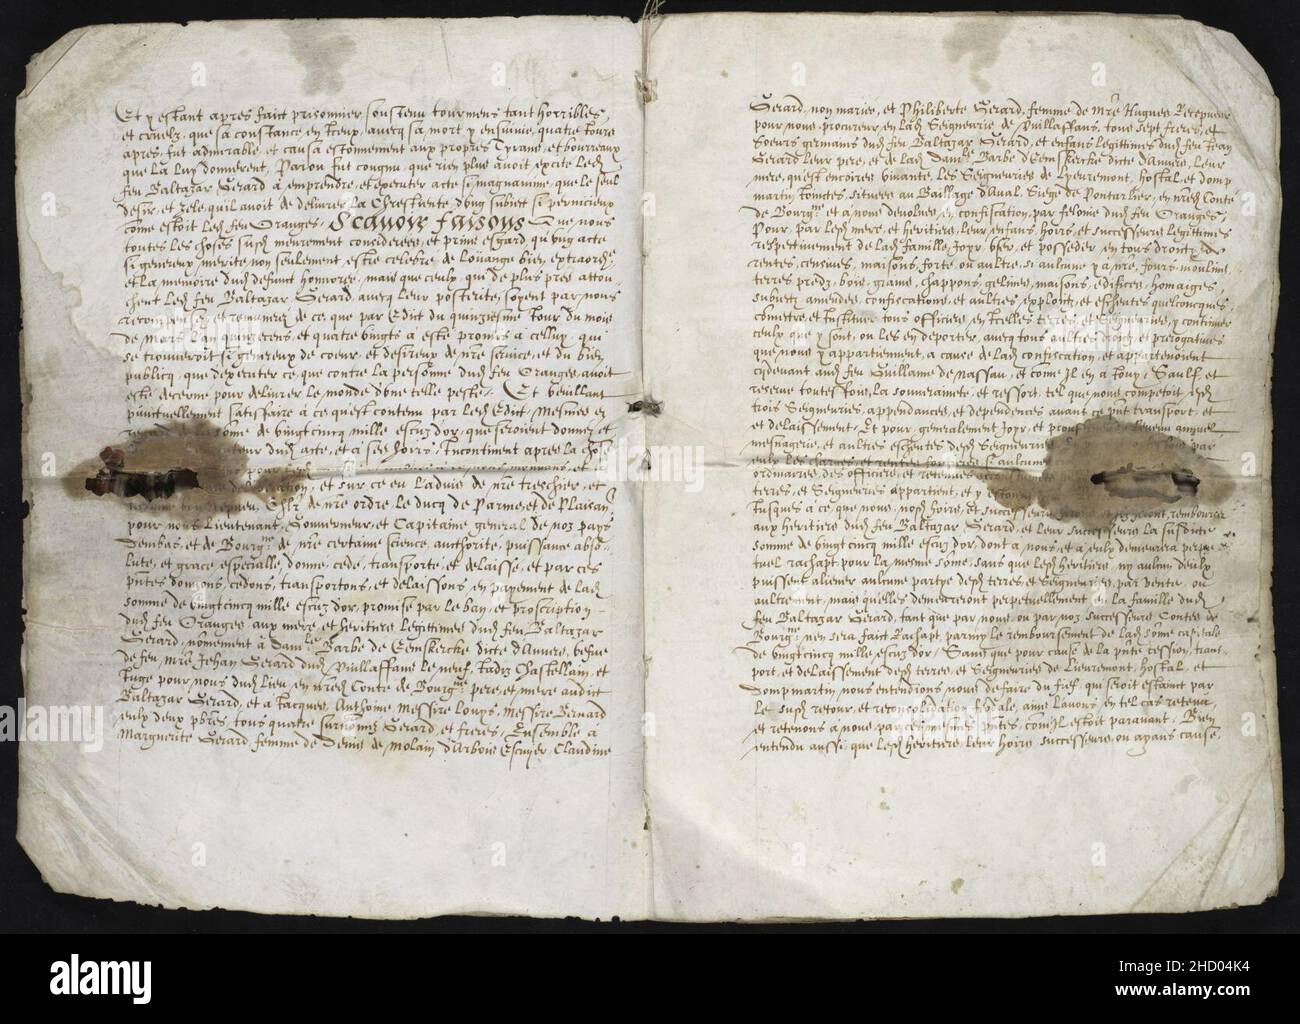 Et y estant apres fait prisonnier, soustenu tourmens tant horribles,
et cruelz, que sa constance en iceux, avecq sa mort y ensuivie, quatre iours
apres, fut admirable, et causa estonnement aux propres Tyrans, et bourreaux
que la luy donnerent, Par ou fut congnu que rien plus avoit excité ledt
feu Baltazar Gerard à emprendre, et executer acte si magnanime, que le seul
desir, et zele, qu'il avoit de delivrer la Chrestienté, d'ung subiect si pernicieux
côme estoit ledt feu Oranges, Scavoir faisons Que nous
toutes les choses susdt meurement considerees, et prins esgard, qu'ung acte
si genereux, merite non seulement, estre celebre de louange bien extraordre
et la memoire dudt defunct honnoree, mais que ceulx qui de plus pres attou-
chent ledt feu Baltazar Gerard, avecq leur posterité, soyent par nous
recompensez, et remunerez de ce que par Edict du quinziesme Jour du mois
de Mars L'an quinze cens, et quatre vingts à esté promis à celluy, qui
se trouveroit si genereux de coeur, et desireux de nre service, et du bien
publicq, que d'executer ce, que contre la personne dudt feu Oranges, avoit
esté decerné pour delivrer le monde d'une telle peste. Et veuillant
punctuellement satisfaire à ce qu'est contenu par ledt Edict, Mesmes en
sôme de vingtcincq mille escuz d'or, que seroient donnez
dudt acte, et à ses hoirs, Incontinent apres la chose
pour
et sur ce eu l'advis de nre treschier, et
Chlr de nre ordre le ducq de Parme, et de Plaisance
pour nous Lieutenant, Gouverneur, et Capitaine general de noz pays
d'embas, et de Bourgne de nre certaine science, authorité, puissance abso-
lute, et grace especialle, donné, cedé, transporté, et delaissé, et par ces
pntes donnons, cedons, transportons, et delaissons, en payement de ladt
somme de vingtcincq mille escuz d'or, promise par le ban, et Proscription
dudt feu Oranges, aux mere, et heritiers legittimes dudt feu Baltazar
Gerard, nômement à Damle Barbe de Eenskercke dicte d'Anvers, vefve
de feu mre Jehan Gerard dudt Vuillaffans le neuf, Iadiz Chastellain, et
Iuge pour nous dudt Lieu, en nredt Conté de Bourgne pere, et mere audict
Baltazar Gerard, et à Iacques, Anthoine, Messire Louys, Messire Bernard
eulx deux pbres, tous quatre surnômez Gerard, et freres, Ensemble à
Marguerite Gerard, femme de Denis de Molain d'Arbois Escuyer, Claudine
Gerard, non mariee, et Philiberte Gerard, femme de Mre Hugues Perequeur
pour nous, procureur, en ladt Seigneurie de Vuillaffans, tous sept freres, et
Soeurs germains dudt feu Baltazar Gerard, et enfans legittimes dudt feu Jean
Gerard leur pere, et de ladt Damle Barbe d'Eenskercke dicte d'Anvers, leur
mere, qu'est encoires vivante, les Seigneuries de Lievremont, Hostal, et Domp
martin, Tointes, situees au Baillage d'Aval, Siege de Pontarlier, en nredt Conté
de Bourgne et à nous devolues, en confiscation, par felonie dudt feu Oranges,
Pour par lesdt mere, et heritiers, leurs enfans, hoirs, et successeurs legittimes
respectivement de ladt famille, Ioyr, user, et posseder, en tous droitz de
rentes, censives, maisons, forts, ou aultre, si aulcune y a, nre, fours, moulins,
terres, predz, bois, grains, chappons, gelines, maisons, edifices, homaiges,
subiectz, amendes, confiscations, et aultres, exploictz, et escheutes quelconcques,
Cômettre, et Instituer tous officiers, en Icelles terres, et Seigneuries, y continuer
ceulx, que y sont, ou les en deporter, avecq tous aultres droictz, et prerogatives
que nous y appartiennent, à cause de ladt confiscation, et appartenoient
cydevant audt feu Guillaume de Nassau, et come Il en a Iouy, Saulf, et
reservé toutesfois, la souveraineté, et ressort, tel que nous competoit esdt
trois Seigneuries, appendances, et dependences avant ce pnt transport, et
et delaissement, Et pour generalement Ioyr, et
mesnagerie, et aultres escheutes desdt Seigneuries
eulx les charges, et rentes foncieres si aulcunes
ordinaires, des officiers, et
terres, et Seigneuries appartient, et y
Iusques à ce que nous, nosdt hoirs, et successeurs rembourser
aux heritiers dudt feu Baltazar Gerard, et leurs successeurs la susdite
somme de vingtcincq mille escuz d'or, dont à nous, et à eulx demeurera perpe-
tuel rachapt pour la mesme sôme, sans que lesdt heritiers, ny aulcun d'eulx
puissent aliener aulcune partye desdt terres, et Seigneuries, par vente, ou
aultrement, mais qu'elles demeureront perpetuellement en la famille dudt
feu Baltazar Gerard, tant que par nous, ou par noz successeurs Contes de
Bourgne n'en sera fait Rachapt parmy le remboursement de ladt sôme capitale
de vingtcincq mille escuz d'or, Sans que pour cause de la pnte cession, trans-
port, et delaissement desdt terres, et Seigneuries de Lievremont, Hostal, et
Dompmartin, nous entendions nous deffaire du fief, qui seroit estainct par
le susdt retour, et reconsolidation feodale, ains l'avons, en tel cas retenu,
et retenons à nous, par ces mesmes pntes, come Il estoit paravant. Bien
entendu aussi que lesdt heritiers, leurs hoirs, successeurs, ou ayans cause,
alamy
Image ID: 2HD04K4
www.alamy.com